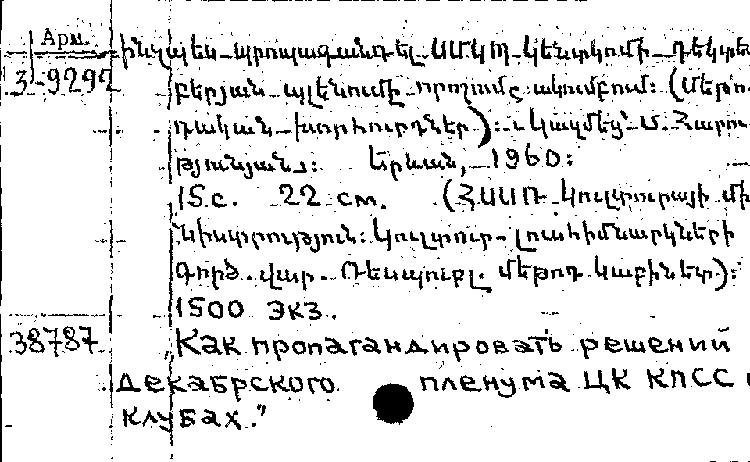 Арм. Ինչպես պրոպագանդել ՍՄԿՊ Կենտկոմի դեկտե
3-9297 բերյան պլենումի որոշումը ակումբում: (Մեթո
դական խորհուրդներ): Կազմեց՝ Մ. Հարու
թյունյան: Երևան, 1960:
15 с. 22 см. (ՀՍՍՌ Կուլտուրայի մի
նիստրություն: Կուլտուր-լուսհիմնարկների
գործ. վար. Ռեսպուբլ. մեթոդ կաբինետ):
1500 экз.
38787 „Как пропагандировать решений
декабрского пленума ЦК КПСС
клубах."